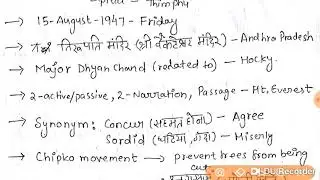 - Thimphu
→ 15-August-1947 - Friday
→ तिरुपति मंदिर (श्री वेंकटेश्वर मंदिर) - Andhra Pradesh
→ Major Dhyan Chand (related to) - Hocky.
→ 2-active/passive, 2-Narration, Passage - Mt. Everest
→ Synonym: Concur (सहमत होना) - Agree
Sordid (घटिया, ) - Miserly
→ Chipko movement → prevent trees from being
cut
DU Recorder